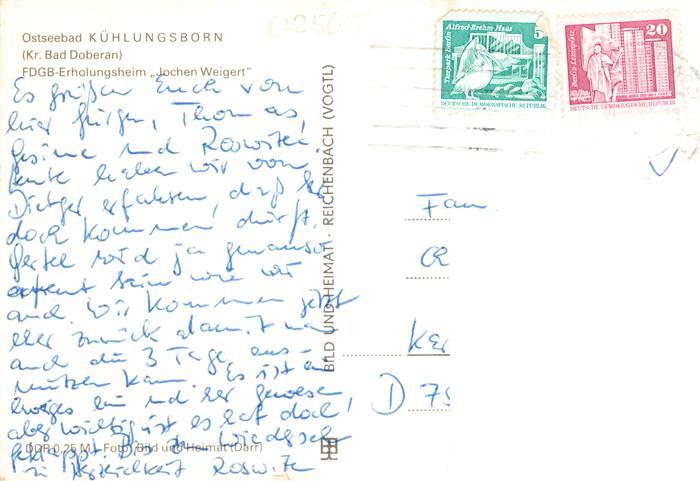 Ostseebad KÜHLUNGSBORN
(Kr. Bad Doberan)
FDGB-Erholungsheim „Jochen Weigert"
Es grüßen Euch von
hier Jürgen, Thomas,
Gesine und Roswitha.
Heute haben wir von
Dietger erfahren, daß Ihr
doch kommen dürft.
Gertel wird ja genauso
erfreut sein wie wir
auch. Wir kommen jetzt
eher zurück damit man
auch die 3 Tage aus-
nützen kann. Es ist ein
ewiges hin und her gewesen
aber wichtig ist es hat doch
geklappt. Bis zum Wiedersehn
in Herzlichkeit Roswitha
DDR 0,25 M Foto: Bild und Heimat (Darr)
BILD UND HEIMAT · REICHENBACH (VOGTL)
Tierpark Berlin
Alfred-Brehm-Haus
5
DEUTSCHE DEMOKRATISCHE REPUBLIK
Berlin, Leninplatz
20
DEUTSCHE DEMOKRATISCHE REPUBLIK
Fam
D